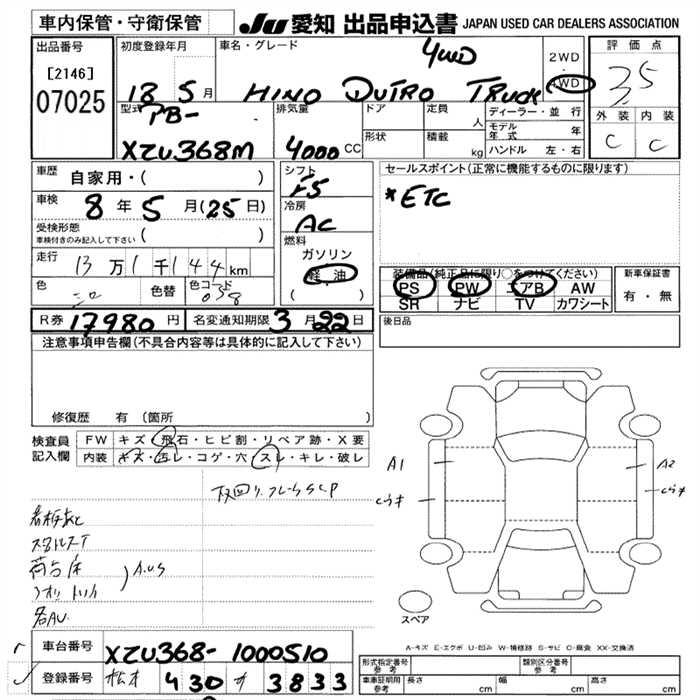 車内保管・守衛保管
JU 愛知 出品申込書 JAPAN USED CAR DEALERS ASSOCIATION
出品番号
[2146]
07025
初度登録年月
18 5 月
車名・グレード
4WD
HINO DUTRO TRUCK
2WD
・
4WD
評価点
3.5
外装 内装
C C
型式
PB-
XZU368M
排気量
4000 CC
ドア
形状
定員
人
積載
kg
ディーラー・並行
モデル年式 年
ハンドル 左・右
車歴
自家用・( )
車検
8 年 5 月(25日)
受検形態
車検付きのみ記入して下さい
( )
走行
13万1千144km
色
シロ
色替
色コード
058
シフト
F5
冷房
AC
燃料
ガソリン
軽油
( )
セールスポイント(正常に機能するものに限ります)
*ETC
装備品(純正品に限り○をつけてください)
PS PW エアB AW
SR ナビ TV カワシート
新車保証書
有・無
R券 17980 円 名変通知期限 3月22日
後日品
注意事項申告欄(不具合内容等は具体的に記入して下さい)
修復歴 有(箇所
検査員
記入欄
FW キズ・飛石・ヒビ割・リペア跡・X要
内装 キズ・汚レ・コゲ・穴・スレ・キレ・破レ
下回り・フレームSCP
荷台床
A.US
A1
A2
スペア
A-キズ E-エクボ U-凹み W-補修跡 S-サビ C-腐食 XX-交換済
車台番号
XZU368-1000510
登録番号
430 3833
形式指定番号
参考
類別区分番号
参考
車庫証明
参考
長さ cm 幅 cm 高さ cm